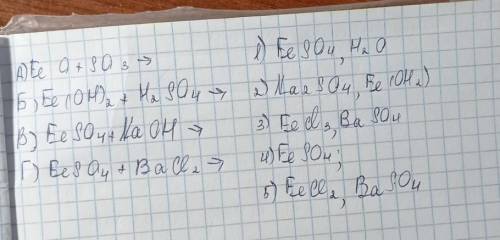 А) Fe O + SO 3 →
Б) Fe(OH)2 + H2SO4 →
В) FeSO4 + NaOH →
Г) FeSO4 + BaCl2 →
1) FeSO4, H2O
2) Na2SO4, Fe(OH2)
3) FeCl3, BaSO4
4) FeSO4;
5) FeCl2, BaSO4